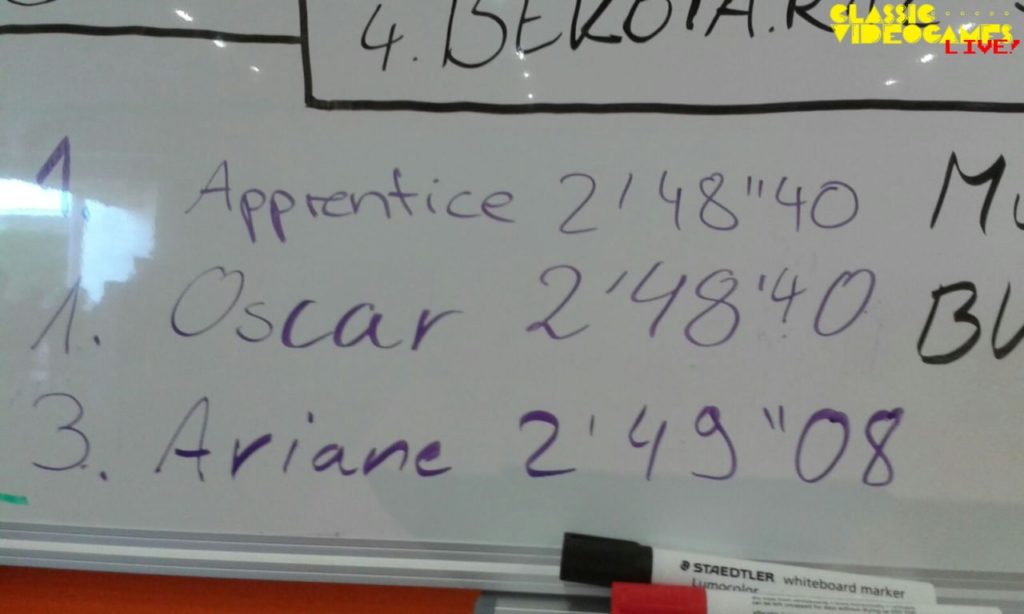 4.
CLASSIC
VIDEOGAMES
LIVE!
1. Apprentice 2'48"40
1. Oscar 2'48"40
3. Ariane 2'49"08
STAEDTLER whiteboard marker
Lumocolor